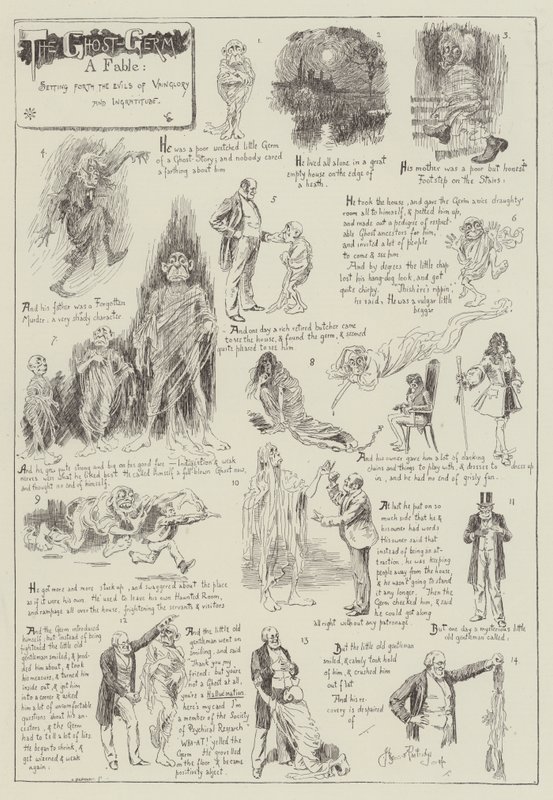 The Ghost-Germ
A Fable:
Setting forth the evils of Vainglory
and Ingratitude.
1.
He was a poor wretched little Germ
of a Ghost-Story; and nobody cared
a farthing about him
2
He lived all alone in a great
empty house on the edge of
a heath.
3.
His mother was a poor but honest
Footstep on the Stairs:
4.
And his father was a Forgotten
Murder: a very shady character.
5
And one day a rich retired butcher came
to see the house, & found the germ, & seemed
quite pleased to see him
6
He took the house, and gave the Germ a nice draughty
room all to himself, & petted him up,
and made out a pedigree of respect-
able Ghost ancestors for him,
and invited a lot of people
to come & see him
And by degrees the little chap
lost his hang-dog look, and got
quite chirpy. "This here's rippin'"
he said; He was a vulgar little
beggar
7
And he grew quite strong and big on his good fare — Indigestion & weak
nerves was what he liked best. He called himself a full-blown Ghost now,
and thought no end of himself.
8
And his owner gave him a lot of clacking
chains and things to play with, & dresses to dress up
in, and he had no end of grisly fun.
9
He got more and more stuck up, and swaggered about the place
as if it were his own. He used to leave his own Haunted Room,
and rampage all over the house, frightening the servants & visitors
10
At last he put on so
much side that he &
his owner had words
His owner said that
instead of being an at-
traction, he was keeping
people away from the house,
& he wasn't going to stand
it any longer. Then the
Germ cheeked him, & said
he could get along
all right without any patronage
11
But one day a mysterious little
old gentleman called.
12
And the Germ introduced
himself, but instead of being
frightened the little old
gentleman smiled, & prod-
ded him about, & took
his measure, & turned him
inside out, & got him
into a corner & asked
him a lot of uncomfortable
questions about his an-
cestors, & the Germ
had to tell a lot of lies.
He began to shrink, &
get wizened & weak
again.
13
And the little old
gentleman went on
smiling, and said
"Thank you my
friend: but you're
not a Ghost at all,
you're a Hallucination
here's my card I'm
a member of the Society
of Psychical Research"
"WHAT!" yelled the
Germ He grovelled
on the floor & became
positively abject
14
But the little old gentleman
smiled, & calmly took hold
of him, & crushed him
out flat
And his re-
covery is despaired
of